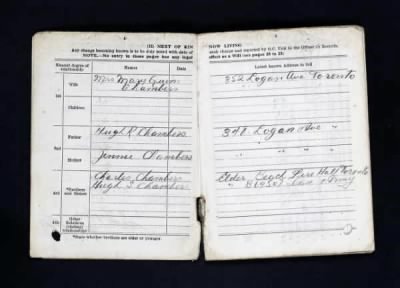 (II) NEXT OF KIN
Any change becoming known is to be duly noted with date of
NOTE.—No entry in these pages has any legal
Nearest degree of relationship
Names
1st
Wife
Mrs Mary
Chambers
Children
2nd
Father
Hugh R Chambers
Mother
Jennie Chambers
3rd
*Brothers and Sisters
Charles Chambers
Hugh S Chambers
4th
Other Relatives (stating relationship)
*State whether brothers are older or younger.
NOW LIVING
each change and reported by O.C. Unit to the Officer i/c Records.
effect as a Will (see pages 20 to 23).
Latest known Address in full
352 Logan Ave Toronto
348 Logan Ave
Elder Fire Hall Toronto
Army